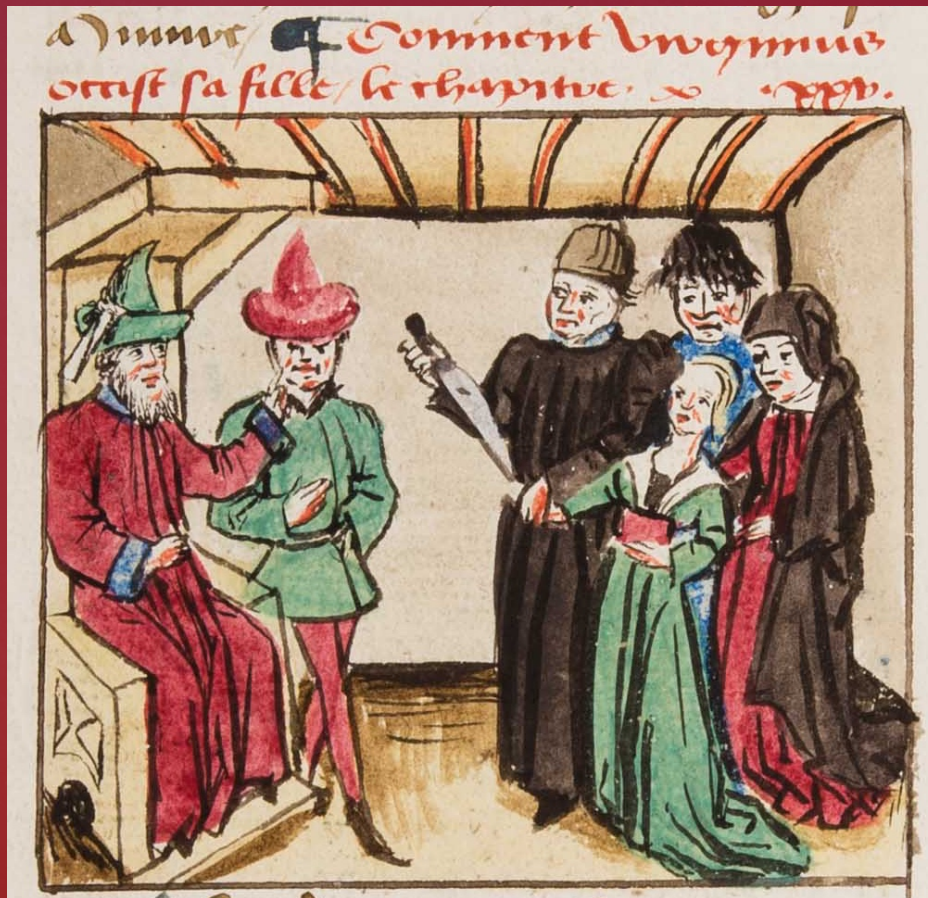 ¶ Comment virginius
occist sa fille / le chapitre. xxv.